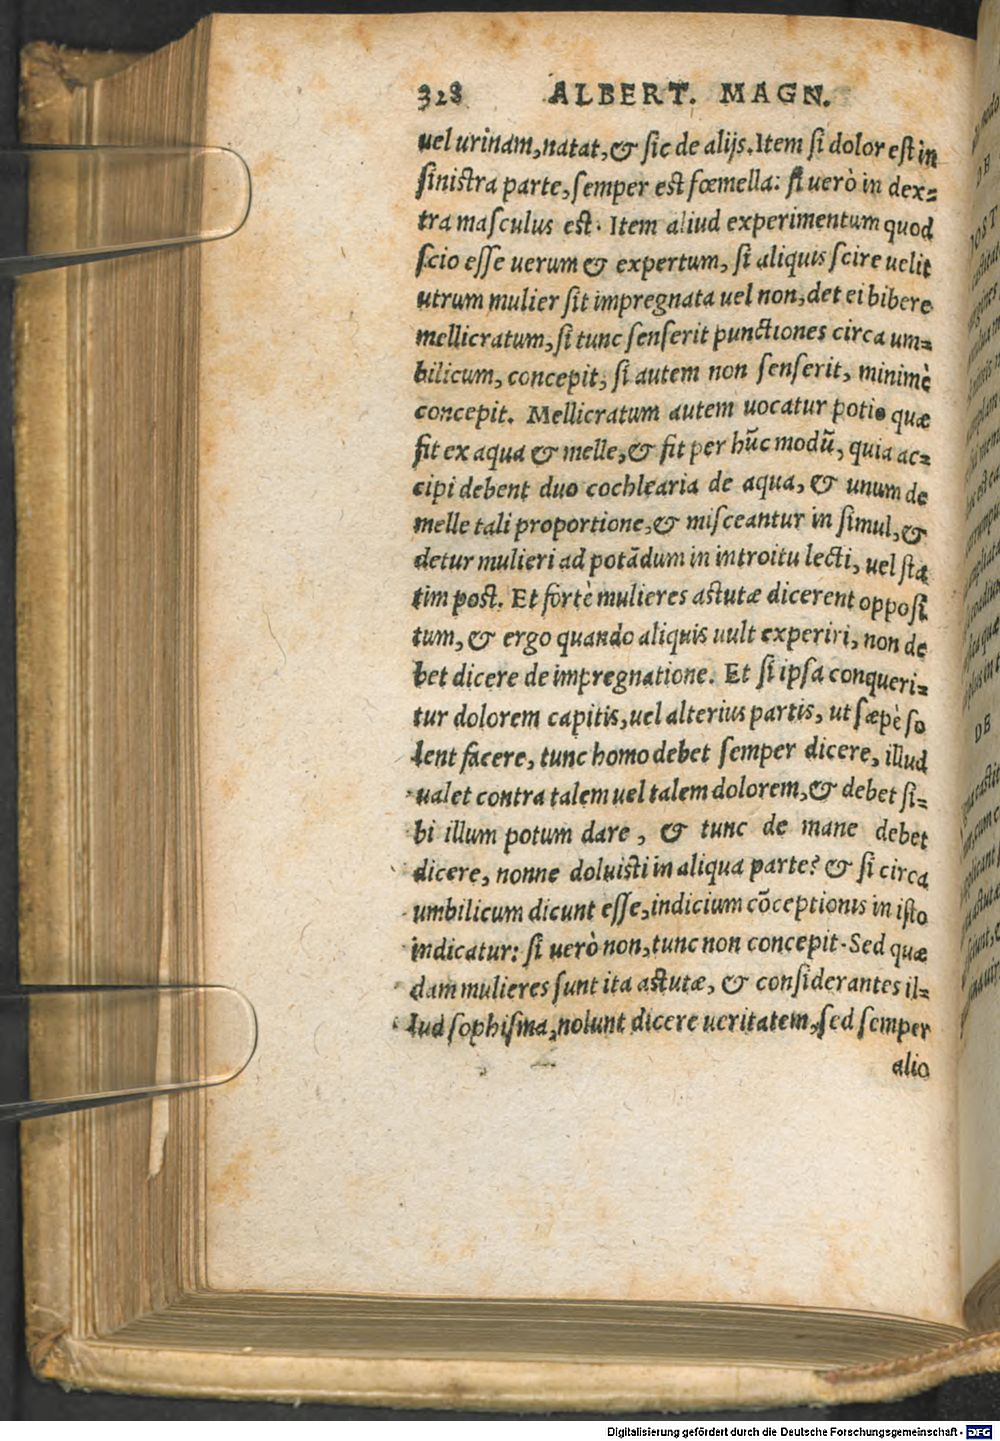 328 ALBERT. MAGN.
uel urinam, natat, & sic de alijs. Item si dolor est in
sinistra parte, semper est fœmella: si uerò in dex=
tra masculus est. Item aliud experimentum quod
scio esse uerum & expertum, si aliquis scire uelit
utrum mulier sit impregnata uel non, det ei bibere
mellicratum, si tunc senserit punctiones circa um=
bilicum, concepit, si autem non senserit, minimè
concepit. Mellicratum autem uocatur potio quæ
fit ex aqua & melle, & fit per hūc modū, quia ac=
cipi debent duo cochlearia de aqua, & unum de
melle tali proportione, & misceantur in simul, &
detur mulieri ad potādum in introitu lecti, uel sta
tim post. Et fortè mulieres astutæ dicerent opposi
tum, & ergo quando aliquis uult experiri, non de
bet dicere de impregnatione. Et si ipsa conqueri=
tur dolorem capitis, uel alterius partis, ut sæpè so
lent facere, tunc homo debet semper dicere, illud
ualet contra talem uel talem dolorem, & debet si=
bi illum potum dare, & tunc de mane debet
dicere, nonne doluisti in aliqua parte? & si circa
umbilicum dicunt esse, indicium cōceptionis in isto
indicatur: si uerò non, tunc non concepit. Sed quæ
dam mulieres sunt ita astutæ, & considerantes il=
lud sophisma, nolunt dicere ueritatem, sed semper
alio
Digitalisierung gefördert durch die Deutsche Forschungsgemeinschaft - DFG